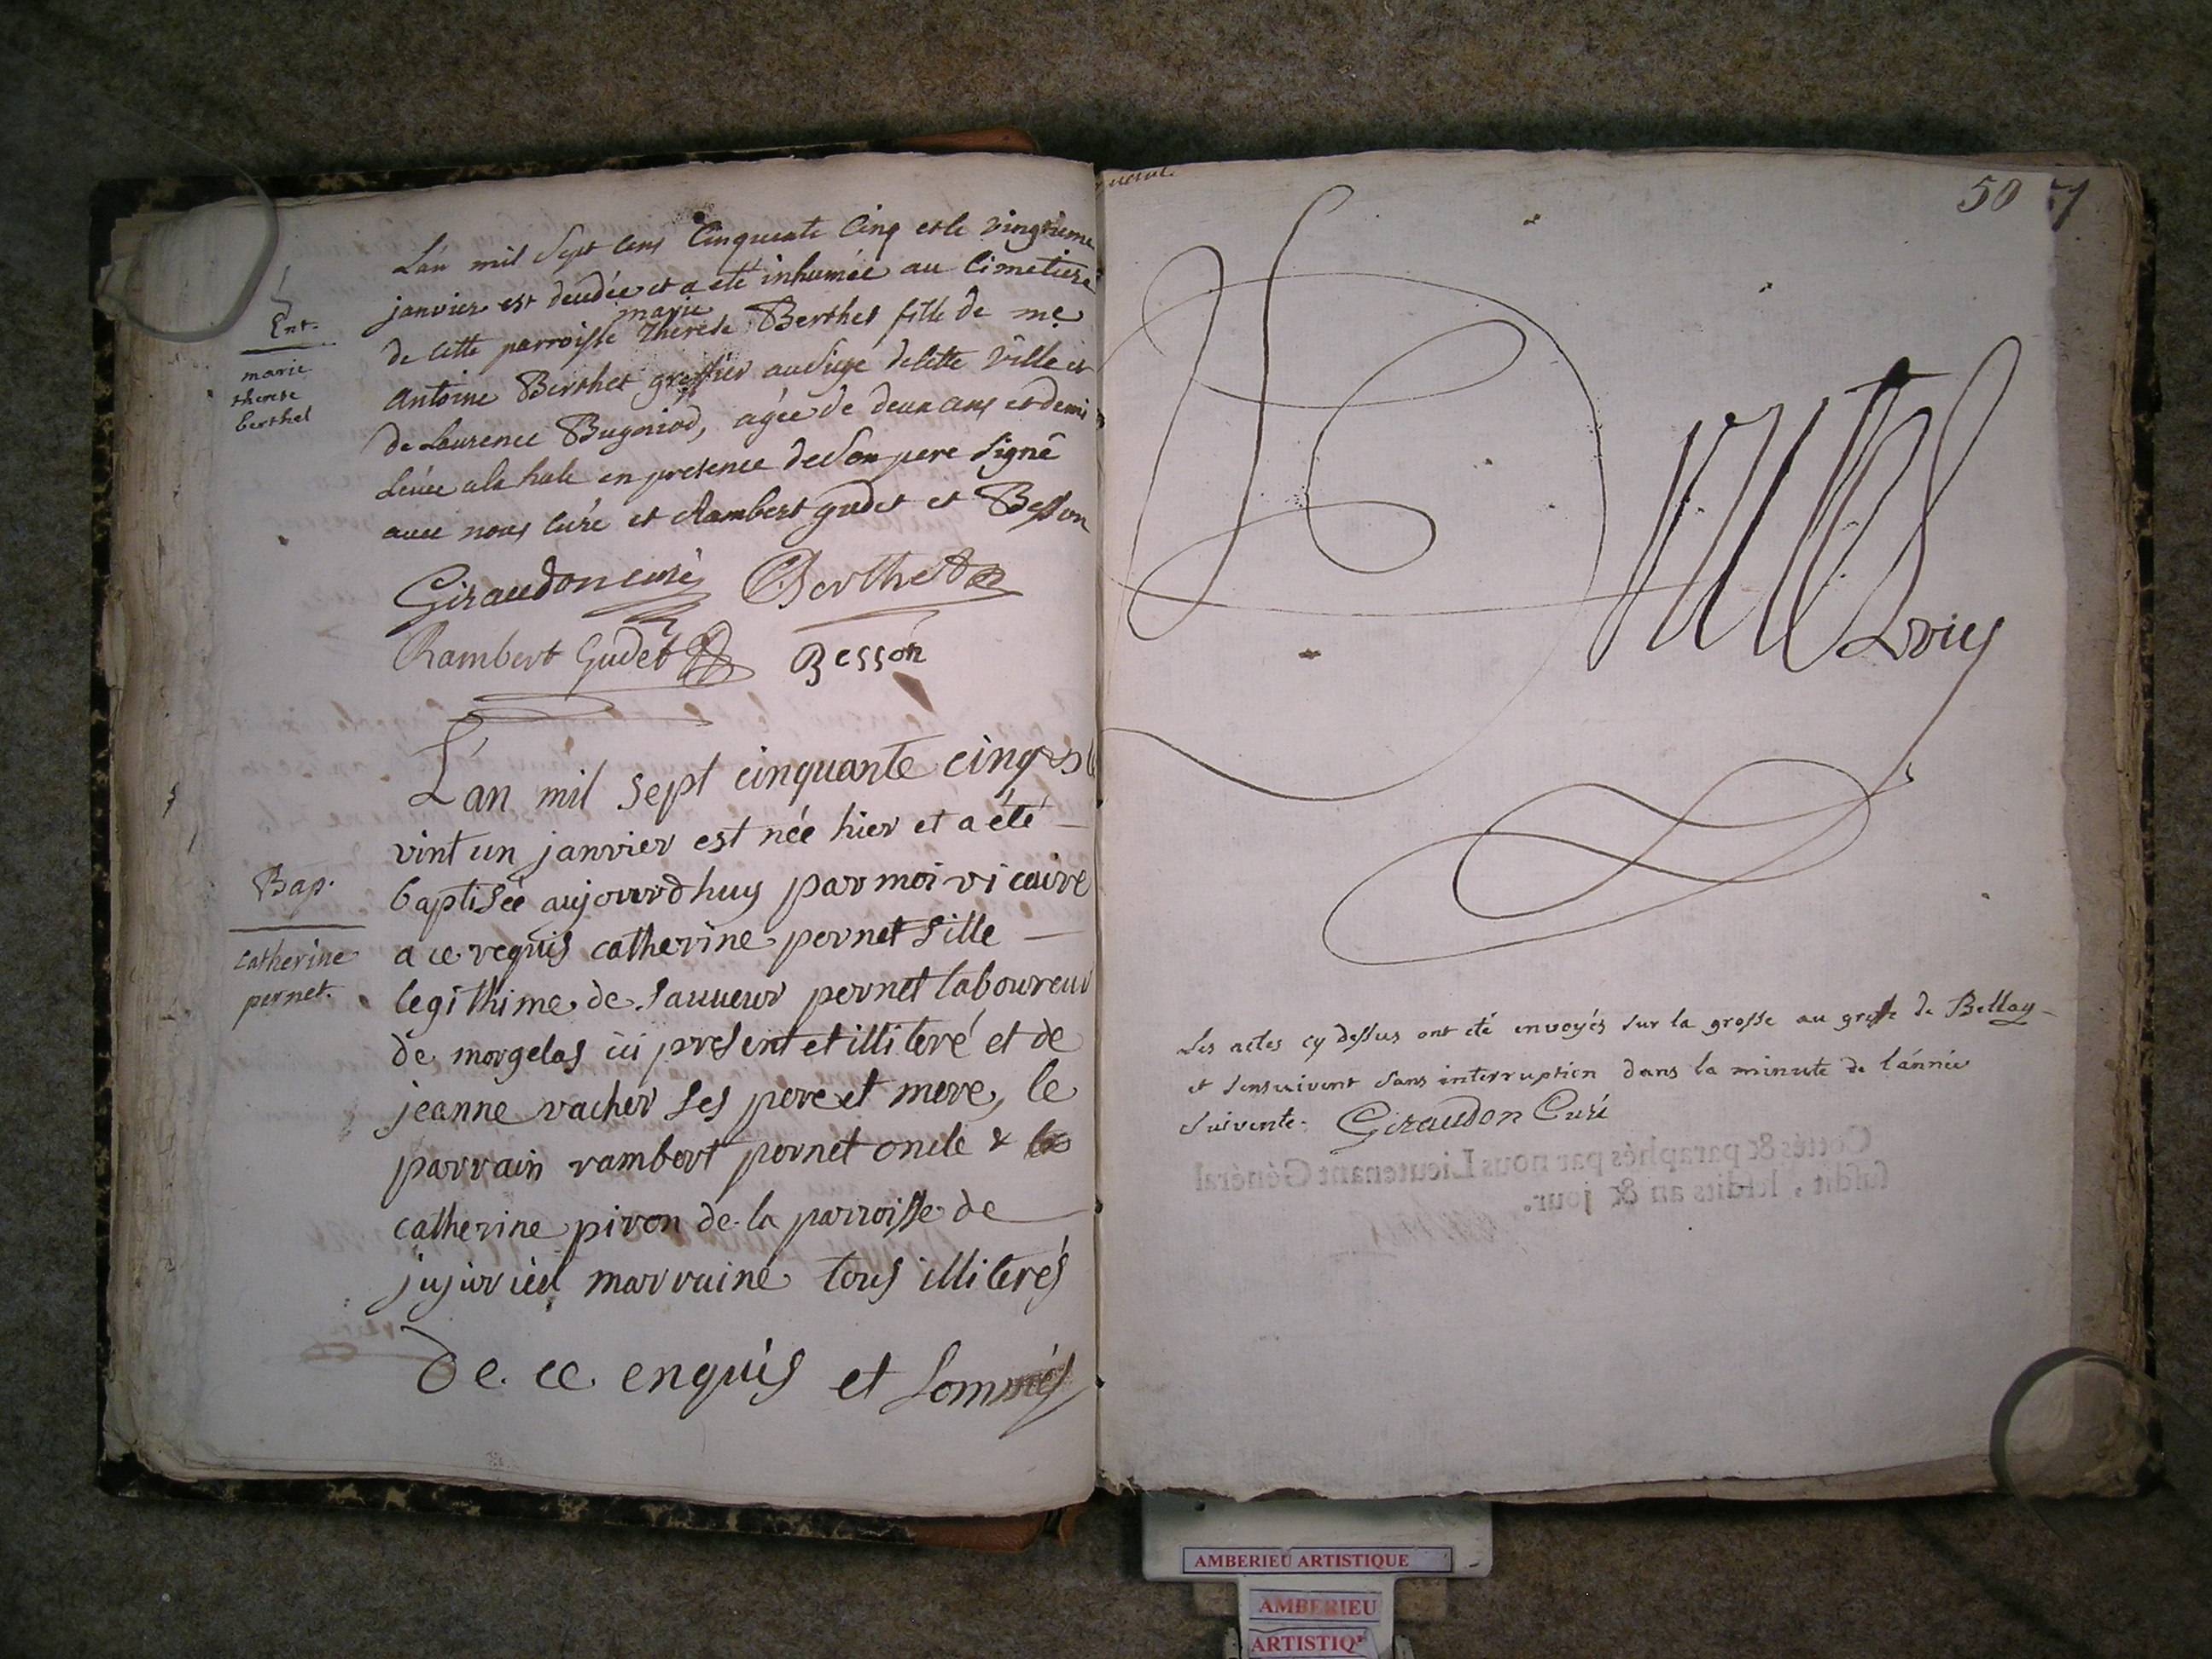 Ent.
marie
therese
berthet
L'an mil Sept Cens Cinquante Cinq et le vingtieme
janvier est decedée et a eté inhumée au Cimetiere
marie
de Cette parroisse Therese Berthet fille de me
Antoine Berthet greffier au Siege de Cette Ville et
de Laurence Bugniod, agée de deux ans et demi
Levée a la hale en presence de Son pere Signé
avec nous Curé et Rambert gudet et Besson
Giraudon curé Berthet
Rambert Gudet Besson
Bap.
Catherine
pernet.
L'an mil sept cinquante cinq et le
vint un janvier est née hier et a été
baptisée aujourdhuy par moi vicaire
a ce requis catherine pernet fille
legithime de Sauveur pernet laboureur
de morgelas ici present et illiteré et de
jeanne vacher Ses pere et mere, le
parrain rambert pernet oncle &
catherine piron de la parroisse de
jujurieu marraine tous illiterés
De ce enquis et Sommés
50 7
Les actes cy dessus ont été envoyés sur la grosse au greffe de Bellay
et s'ensuivent sans interruption dans la minute de l'année
suivente. Giraudon Curé
Cottés & paraphés par nous Lieutenant Général
susdit, lesdits an & jour.
AMBERIEU ARTISTIQUE
AMBERIEU
ARTISTIQ